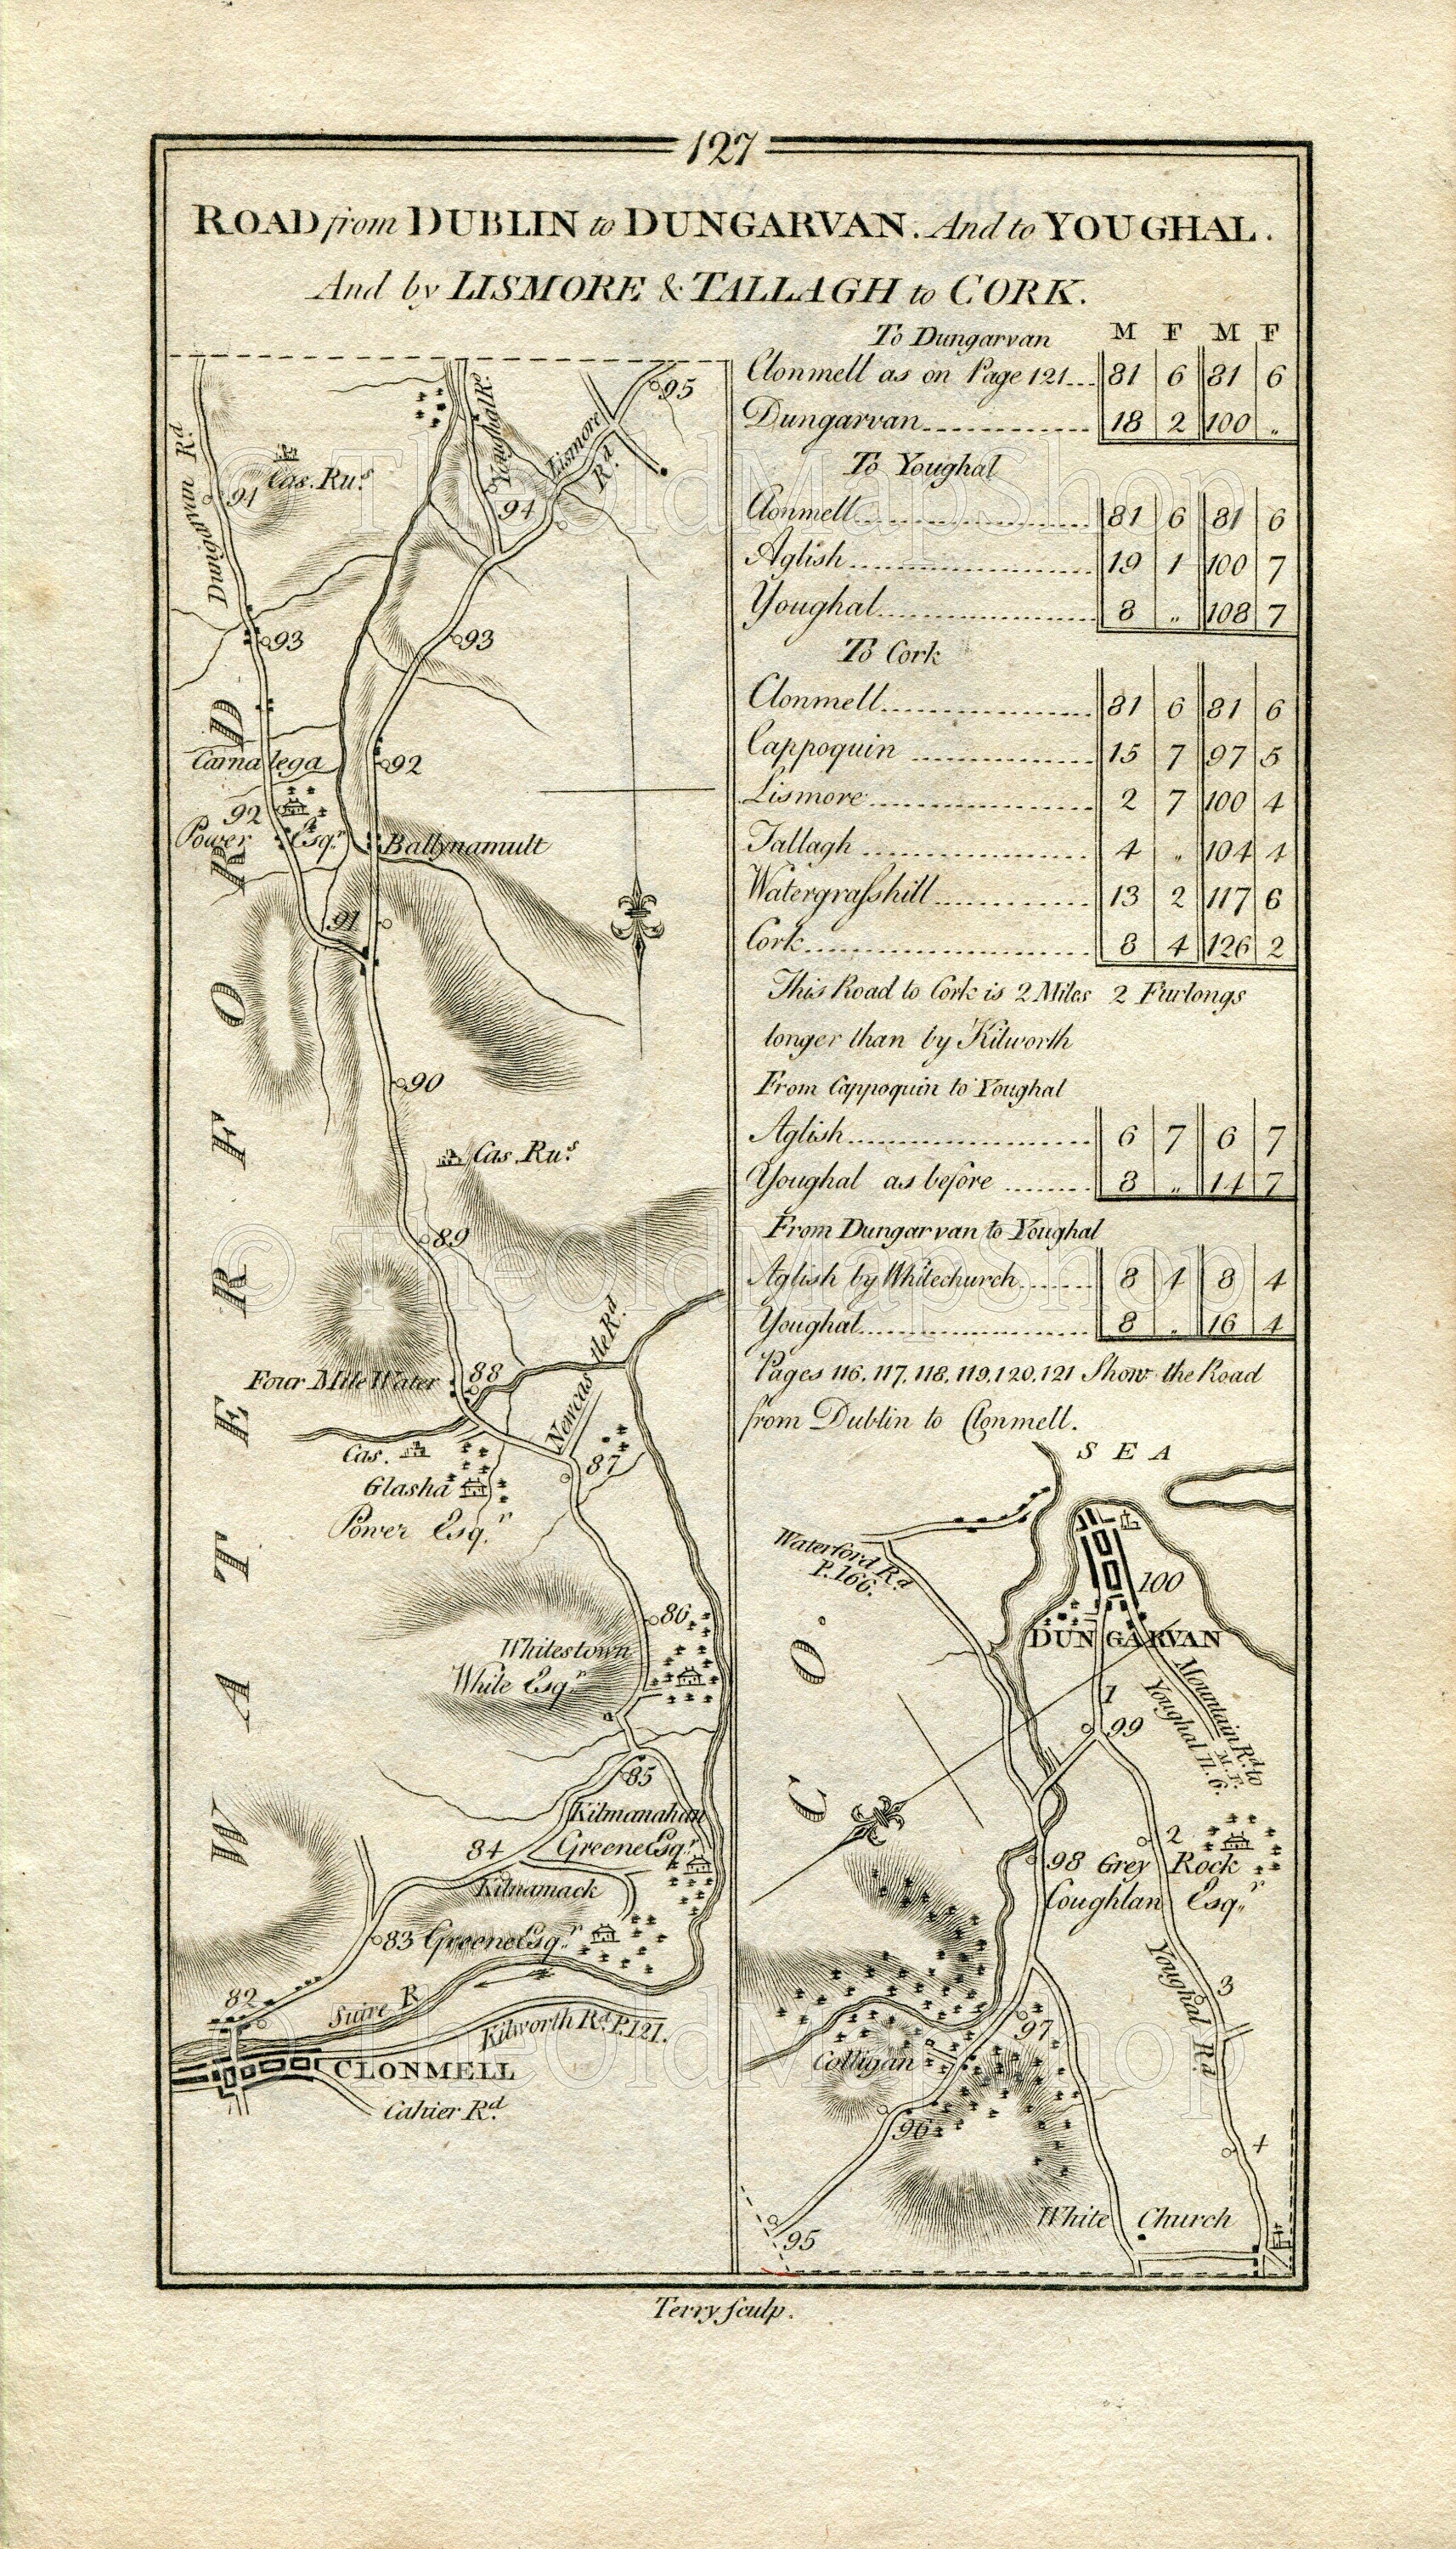 127
ROAD from DUBLIN to DUNGARVAN. And to YOUGHAL.
And by LISMORE & TALLAGH to CORK.
To Dungarvan M F M F
Clonmell as on Page 121 81 6 81 6
Dungarvan 18 2 100 "
To Youghal
Clonmell 81 6 81 6
Aglish 19 1 100 7
Youghal 8 " 108 7
To Cork
Clonmell 81 6 81 6
Cappoquin 15 7 97 5
Lismore 2 7 100 4
Tallagh 4 " 104 4
Watergrasshill 13 2 117 6
Cork 8 4 126 2
This Road to Cork is 2 Miles 2 Furlongs
longer than by Kilworth
From Cappoquin to Youghal
Aglish 6 7 6 7
Youghal as before 8 " 14 7
From Dungarvan to Youghal
Aglish by Whitechurch 8 4 8 4
Youghal 8 " 16 4
Pages 116, 117, 118, 119, 120, 121 Show the Road
from Dublin to Clonmell.
95
Youghal R.
Lismore Rd.
Dungarvan Rd
Cas. Rus
94
94
93
93
Carnalega
92
92
Power Esqr.
Ballynamult
91
90
Cas. Rus
89
Newcas the Rd.
88
Four Mile Water
Cas.
87
Glasha
Power Esqr.
86
Whitestown
White Esqr.
85
Kilmanahan
Greene Esqr.
84
Kilnamack
83 Greene Esqr.
82
Suire R.
Kilworth Rd. P.121.
CLONMELL
Cahier Rd.
WATERFORD
SEA
Waterford Rd.
P.166.
100
DUNGARVAN
Mountain Rd. to
Youghal 11. 6.
M. F.
1
99
CO.
2
98 Grey Rock
Coughlan Esqr.
Youghal Rd.
3
97
Colligan
96
4
White Church
95
Terry sculp.
© TheOldMapShop
© TheOldMapShop
© TheOldMapShop